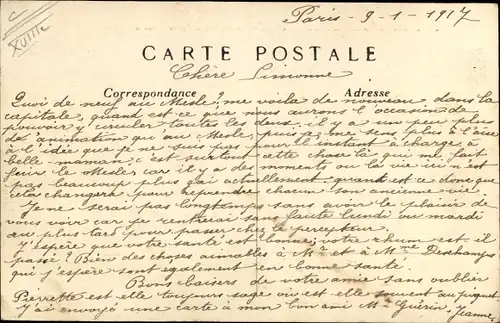 C
XVIIIe
Paris - 9-1-1917
CARTE POSTALE
Chère Simonne
Correspondance Adresse
Quoi de neuf au Mesle? me voila de nouveau dans la
capitale, quand est ce que nous aurons l'occasion de
pouvoir y circuler toutes les deux, il y a un peu plus
d'animation qu'au Mesle, puis je me sens plus à l'aise
à l'idée que je ne suis pas pour l'instant à charge, à
belle maman; c'est surtout cette chose là qui me fait
fuir le Mesle car il y a des moments où la vie n'est
pas beaucoup plus gai actuellement, quand est ce donc que
cela changera, pour reprendre chacun son ancienne vie
Je ne serai pas longtemps sans avoir le plaisir de
vous voir car je rentrerai sans faute lundi ou mardi
au plus tard pour passer chez le percepteur.
J'espère que votre santé est bonne; votre rhum est-il
passé? Bien des choses aimables à Mr et à Mme Deschamps
qui j'espère sont également en bonne santé.
Bons baisers de votre amie sans oublier
Pierrette est elle toujours sage où est elle souvent au
j'ai envoyé une carte à mon bon ami Mr Guérin, Jeanne